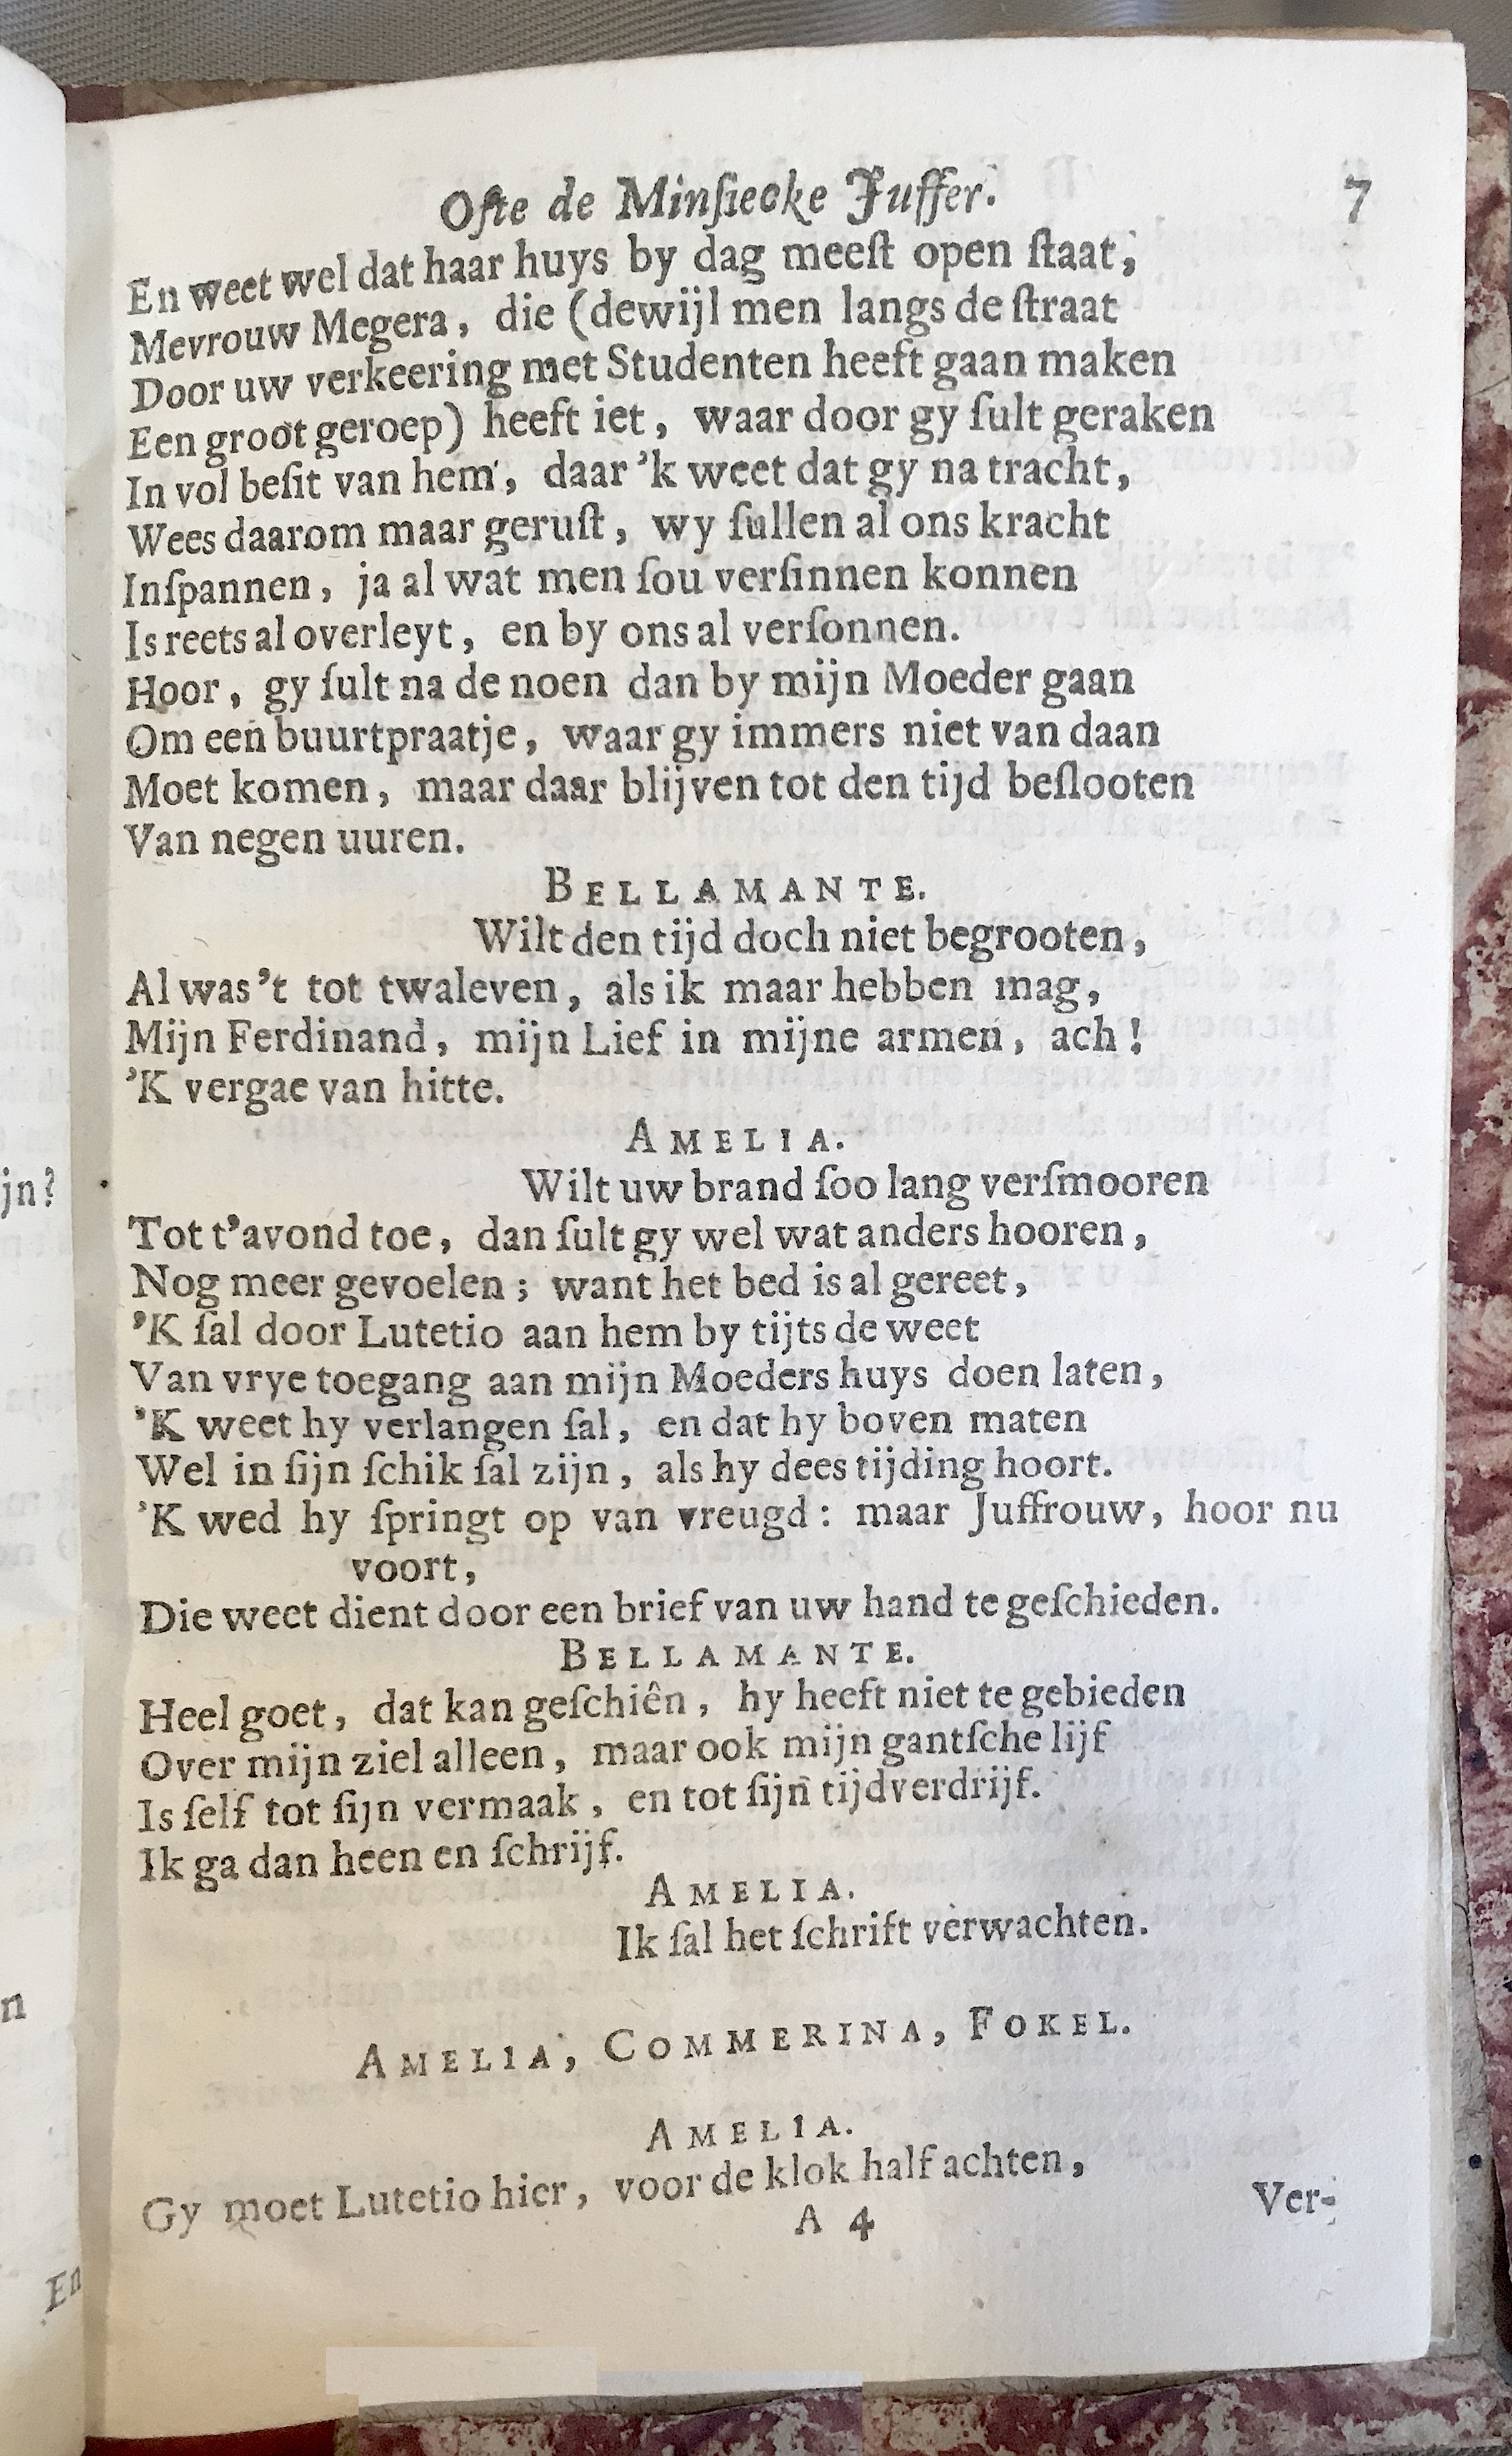 Ofte de Minſiecke Juffer. 7
En weet wel dat haar huys by dag meeſt open ſtaat,
Mevrouw Megera, die (dewijl men langs de ſtraat
Door uw verkeering met Studenten heeft gaan maken
Een groot geroep) heeft iet, waar door gy ſult geraken
In vol beſit van hem, daar 'k weet dat gy na tracht,
Wees daarom maar geruſt, wy ſullen al ons kracht
Inſpannen, ja al wat men ſou verſinnen konnen
Is reets al overleyt, en by ons al verſonnen.
Hoor, gy ſult na de noen dan by mijn Moeder gaan
Om een buurtpraatje, waar gy immers niet van daan
Moet komen, maar daar blijven tot den tijd beſlooten
Van negen uuren.
BELLAMANTE.
Wilt den tijd doch niet begrooten,
Al was't tot twaleven, als ik maar hebben mag,
Mijn Ferdinand, mijn Lief in mijne armen, ach!
'K vergae van hitte.
AMELIA.
Wilt uw brand ſoo lang verſmooren
Tot t'avond toe, dan ſult gy wel wat anders hooren,
Nog meer gevoelen; want het bed is al gereet,
'K ſal door Lutetio aan hem by tijts de weet
Van vrye toegang aan mijn Moeders huys doen laten,
'K weet hy verlangen ſal, en dat hy boven maten
Wel in ſijn ſchik ſal zijn, als hy dees tijding hoort.
'K wed hy ſpringt op van vreugd: maar Juffrouw, hoor nu
voort,
Die weet dient door een brief van uw hand te geſchieden.
BELLAMANTE.
Heel goet, dat kan geſchiên, hy heeft niet te gebieden
Over mijn ziel alleen, maar ook mijn gantſche lijf
Is ſelf tot ſijn vermaak, en tot ſijn tijdverdrijf.
Ik ga dan heen en ſchrijf.
AMELIA.
Ik ſal het ſchrift verwachten.
AMELIA, COMMERINA, FOKEL.
AMELIA.
Gy moet Lutetio hier, voor de klok half achten,
A 4 Ver-
jn?
n
En